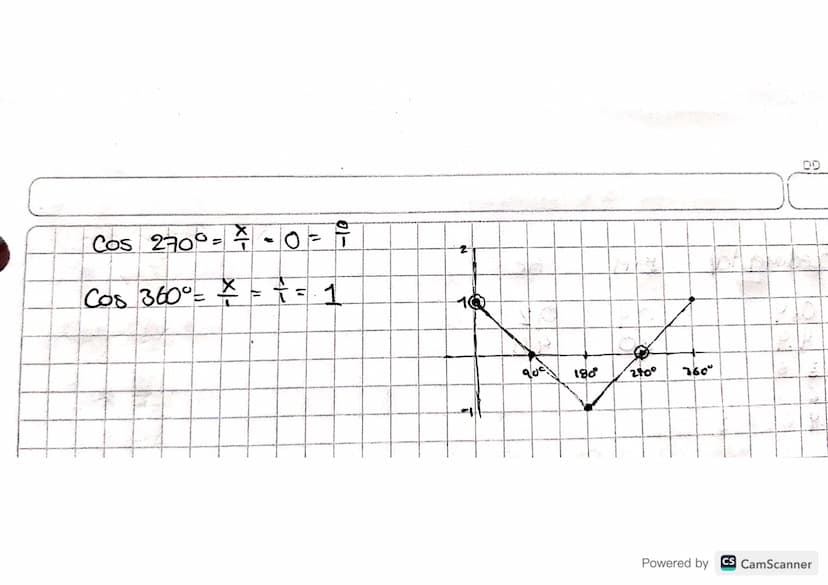 Cos 270° = x/1 = 0 = 0/1
Cos 360° = x/1 = 1/1 = 1
2
1
90° 180° 270° 360°
-1
Powered by CS CamScanner